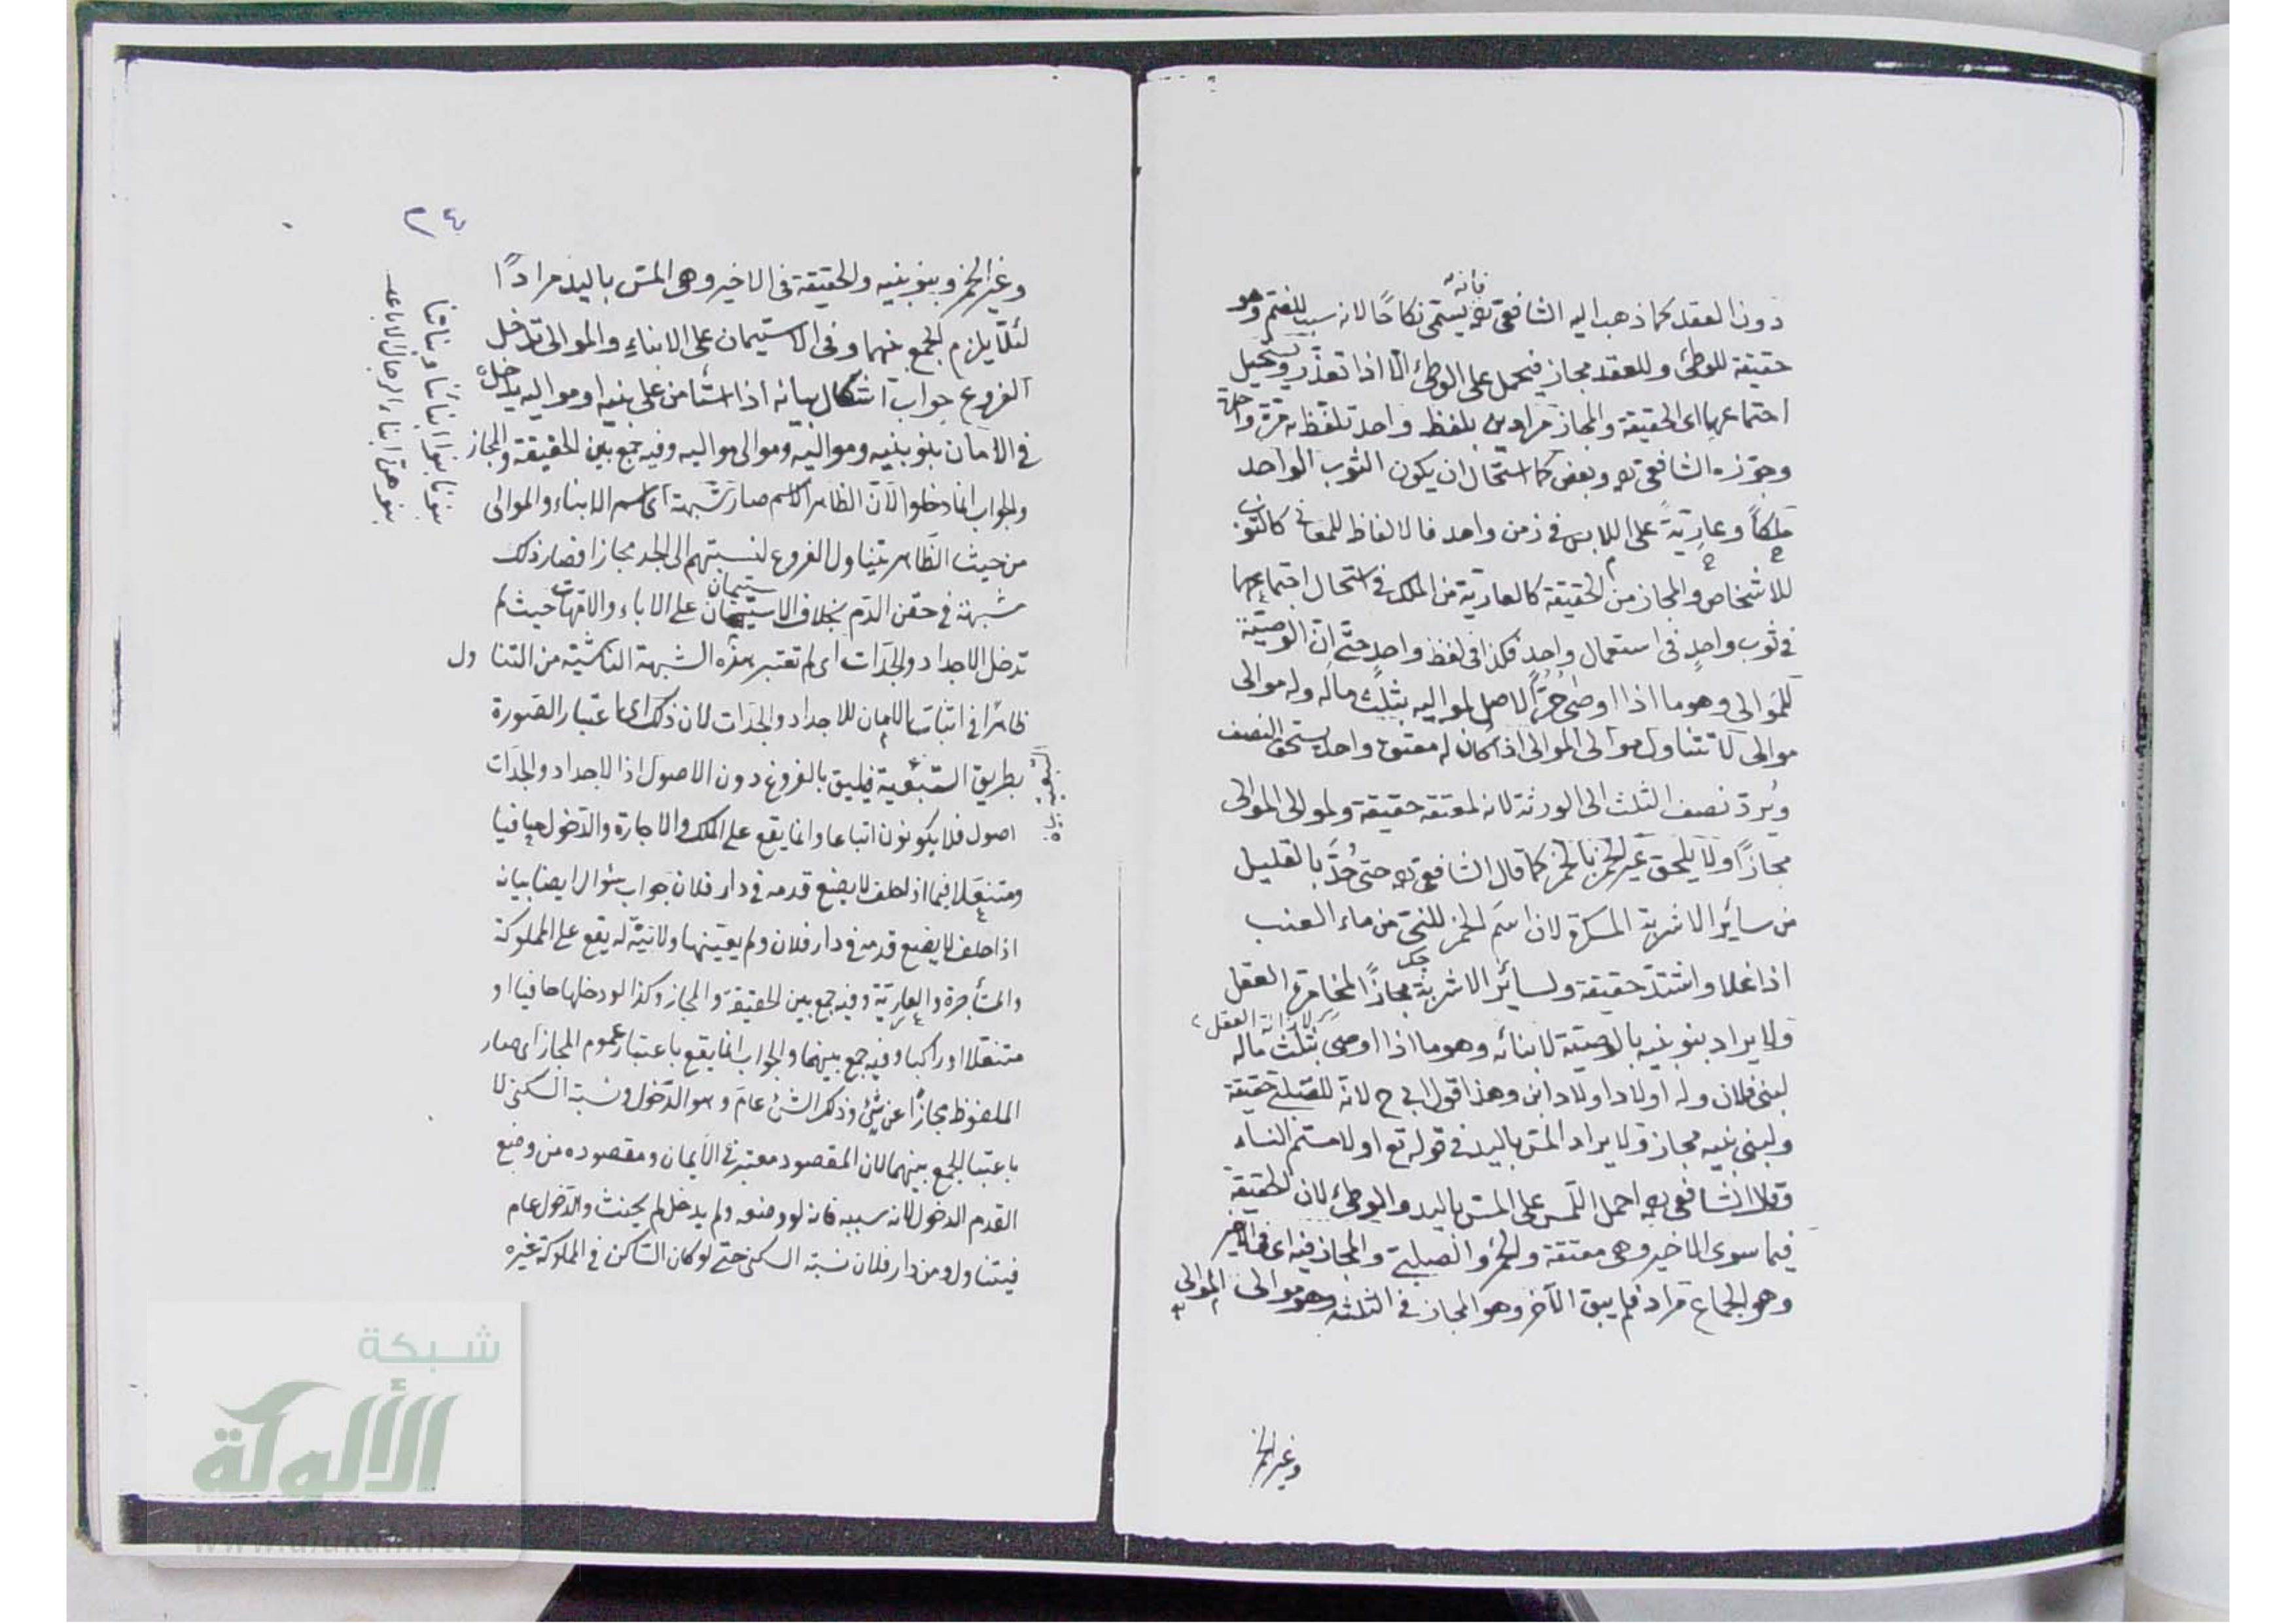 دون العقد كما ذهب اليه الشافعي ره فانه يسمى نكاحًا لانه سبب للضم وهو
حقيقة للوطئ وللعقد مجاز فيحمل على الوطئ الا اذا تعذر ويستحيل
اجتماعهما اى الحقيقة والمجاز مرادين بلفظ واحد تلفظ به مرة واحدة
وجوزه الشافعي ره وبعض كما استحال ان يكون الثوب الواحد
ملكاً وعاريةً على اللابس في زمن واحد فالالفاظ للمعاني كالثوب
للاشخاص والمجاز من الحقيقة كالعارية من الملك في استحال اجتماعهما
في ثوب واحدٍ في استعمال واحد فكذا في لفظ واحد حتى ان الوصية
للموالى وهو ما اذا اوصى حُرُّ الاصل لمواليه بثلث ماله وله موالى
موالى لا تتناول موالى الموالى اذا كان له معتق واحد يستحق النصف
ويُردّ نصف الثلث الى الورثة لانه لمعتقه حقيقة ولموالى الموالى
مجازًا ولا يلحق غير الخمر بالخمر كما قال الشافعي ره حتى حُدَّ بالقليل
من سائر الاشربة المسكرة لان اسم الخمر للنيّ من ماء العنب
اذا غلا واشتدّ حقيقة ولسائر الاشربة مجازًا لمخامرة العقل
لازالة العقل
ولا يراد بنو بنيه بالوصية لابنائه وهو ما اذا اوصى بثلث ماله
لبنى فلان وله اولاد واولاد ابن وهذا قول ابى ح لانه للصلبى حقيقة
ولبنى بنيه مجاز ولا يراد المس باليد في قوله تع او لامستم النساء
وقال الشافعي ره احمل اللمس على المس باليد والوطئ لان الحقيقة
فيما سوى الاخير وهى معتقه والخمر والصلبى والمجاز فيه اى في الاخير
وهو الجماع مراد فلم يبق الآخر وهو المجاز في الثلثة وهو موالى الموالى
وغير الخمر
٢٤
وغير الخمر وبنو بنيه والحقيقة في الاخير وهى المس باليد مرادًا
لئلّا يلزم الجمع بينهما وفى الاستيمان على الابناء والموالى تدخل
الفروع جواب اشكال بيانه اذا استأمن على بنيه ومواليه يدخل
في الامان بنو بنيه ومواليه وموالى مواليه وفيه جمع بين الحقيقة والمجاز
والجواب انما دخلوا لانّ الظاهر الاسم صار شبهة اى اسم الابناء والموالى
من حيث الظاهر يتناول الفروع لنسبتهم الى الجد مجازا فصار ذلك
شبهة في حقن الدم بخلاف الاستيمان على الاباء والامهات حيث لم
تدخل الاجداد والجدّات اى لم تعتبر هذه الشبهة الناشية من التناول
ظاهرا في اثبات الامان للاجداد والجدّات لان ذلك اى اعتبار الصورة
بطريق التبعية فيليق بالفروع دون الاصول اذ الاجداد والجدّات
اصول فلا يكونون اتباعا وانما يقع على الملك والاجارة والدخول حافيا
ومتنعلا فيما اذا حلف لا يضع قدمه في دار فلان جواب سؤال ايضا بيانه
اذا حلف لا يضع قدمه في دار فلان ولم يعيّنها ولا نيّة له يقع على المملوكة
والمستأجرة والعاريّة وفيه جمع بين الحقيقة والمجاز وكذا لو دخلها حافيا او
متنعلا او راكبا وفيه جمع بينهما والجواب انما يقع باعتبار عموم المجاز اى صار
الملفوظ مجازًا عن شئ وذلك الشئ عام وهو الدخول ونسبة السكنى لا
باعتبار الجمع بينهما لان المقصود معتبر في الأيمان ومقصوده من وضع
القدم الدخول لانه سببه فانه لو وضعه ولم يدخل لم يحنث والدخول عام
فيتناول ومن دار فلان نسبة السكنى حتى لو كان الساكن في المملوكة غيره
بنونا بنوا ابنائنا وبناتنا
بنوهن ابناء الرجال الاباعد
شبكة
الألوكة
www.alukah.net